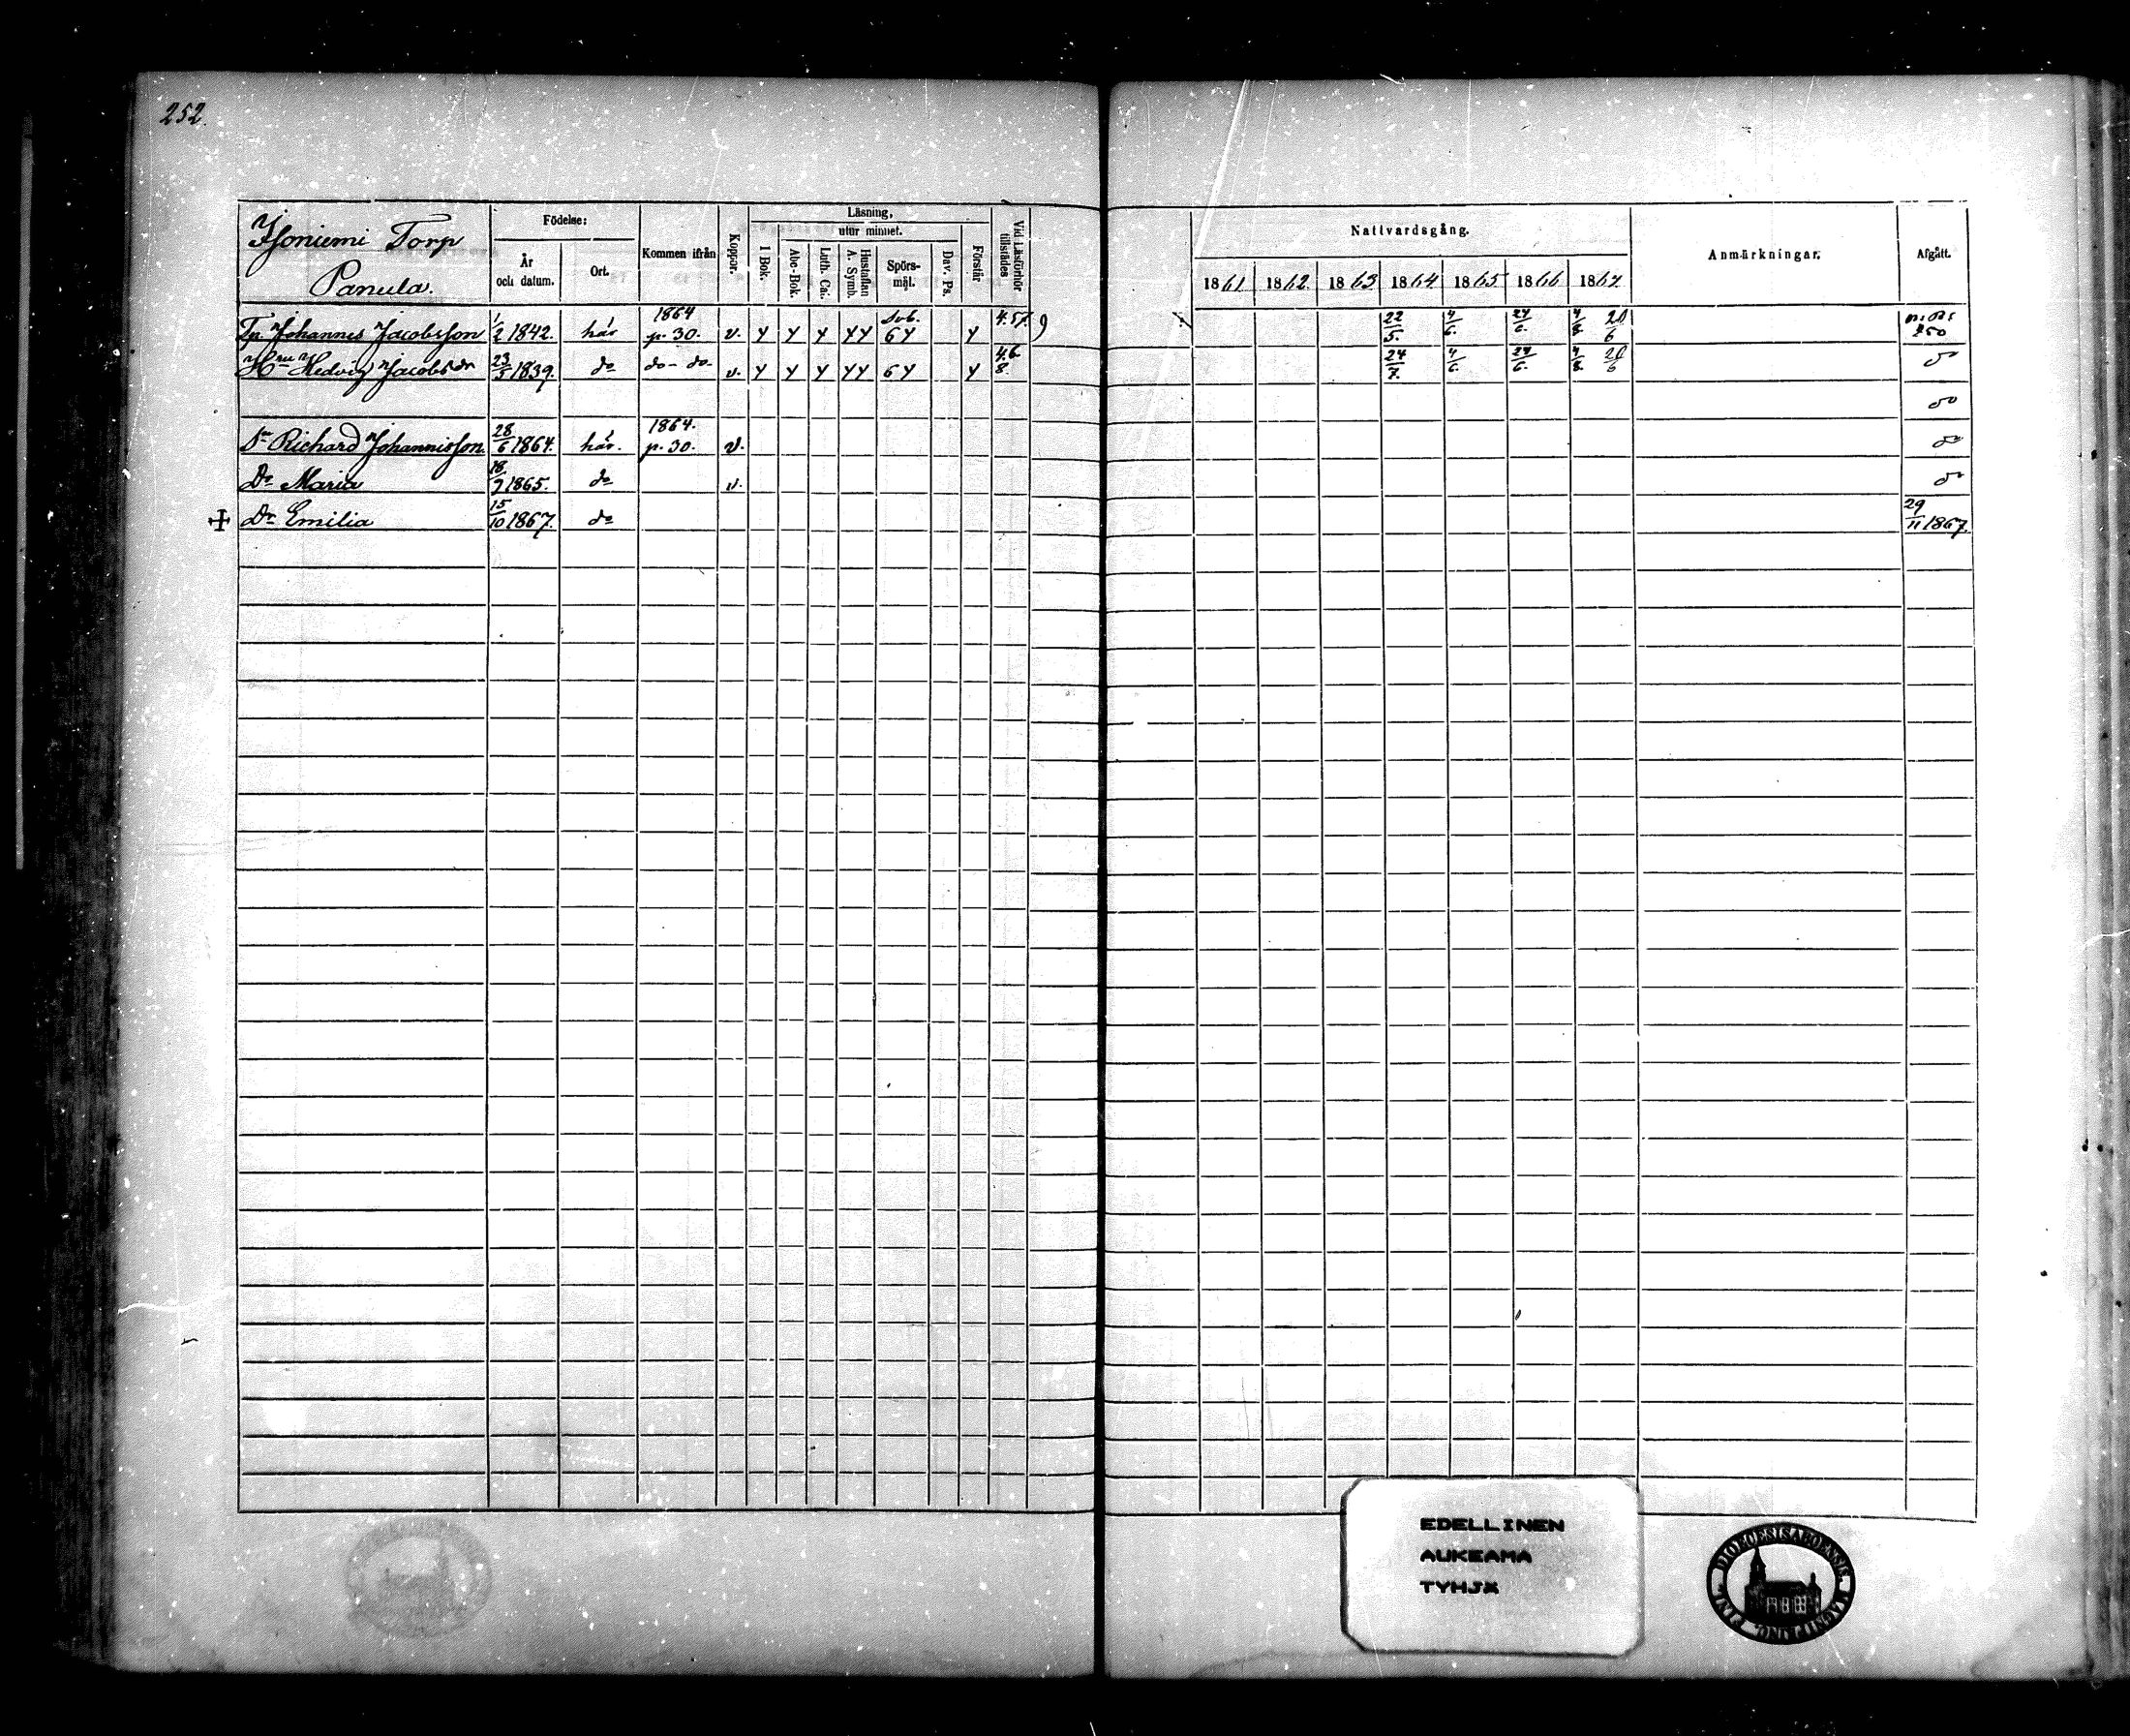 252.
Isoniemi Torp
Panula.
Födelse:
År och datum.
Ort.
Kommen ifrån
Koppor.
Läsning,
I Bok.
utur minnet.
Abc-Bok.
Luth. Cat.
Hustaflan A. Symb.
Spörsmål.
Dav. Ps.
Förstår
Vid Läsförhör tillstädes
Nattvardsgång.
1861 1862. 1863 1864 1865 1866 1867
Anmärkningar.
Afgått.
Tp. Johannes Jacobsson 1/2 1842. här 1864 p. 30. v. 6 4.57. 22/5. 4/6. 24/6. 4/8. 20/6 250
Hru Hedvig Jacobsdr 23/5 1839. do do- do- v. 6 4.6 8. 24/7. 4/6. 24/6. 4/8. 20/6 do
do
Sn Richard Johannisson. 28/6 1864. här. 1864. p. 30. v. do
Dr Maria 18/9 1865. do v. do
Dr Emilia 15/10 1867. do 29/11 1867.
EDELLINEN
AUKEAMA
TYHJÄ